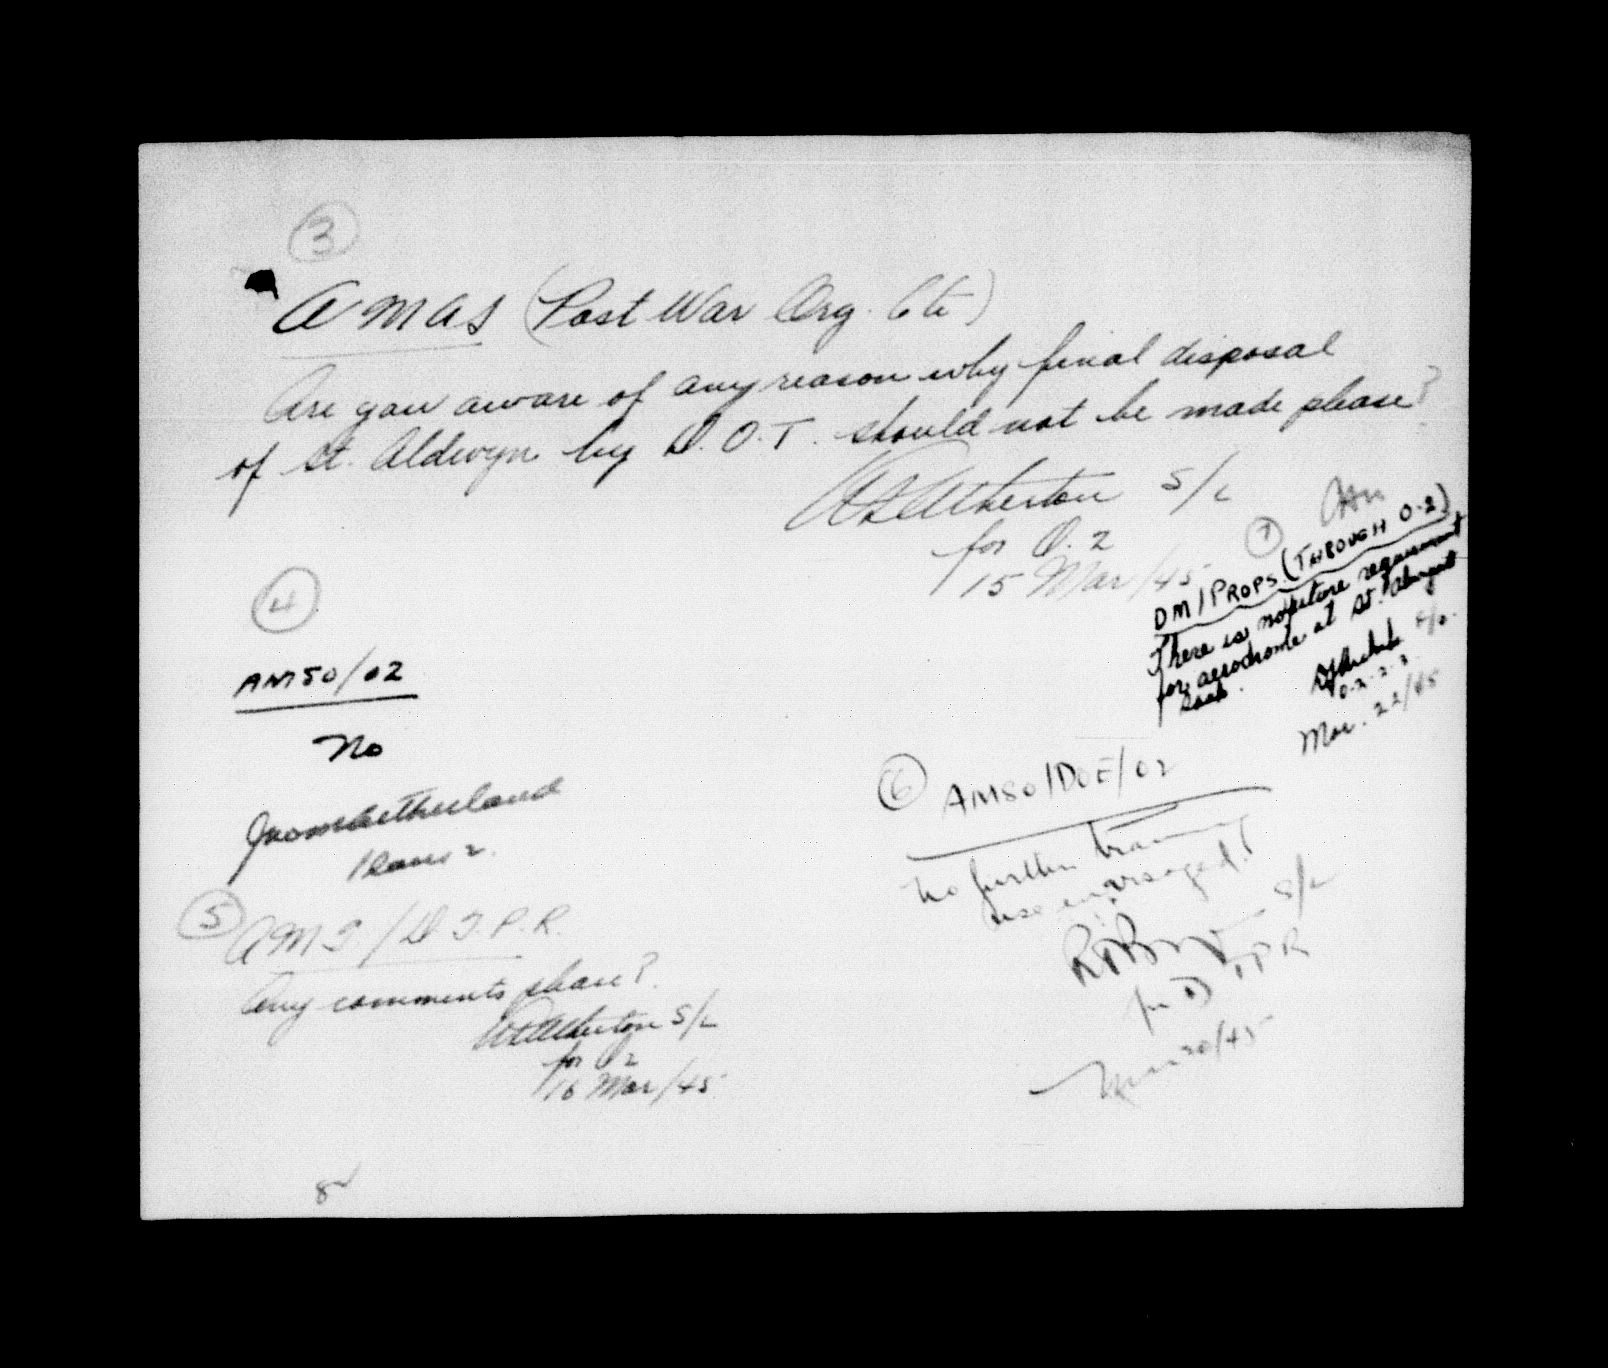 3
AMAS (Post War Org. Cte)
Are you aware of any reason why final disposal
of St. Aldwyn by D.O.T. should not be made please?
Atherton S/L
for O.2
15 Mar/45
4
AMSO/02
No
5
AMT/DTPR.
Any comments please?
Atherton S/L
for O2
16 Mar/45
6
AMSO/DOE/02
No further training
use envisaged.
S/L
for D TPR
Mar 20/45
7
DM/PROPS (THROUGH O-2)
There is no future requirement
for aerodrome at St.
F/O.
O-2-2-2
Mar. 22/45
8